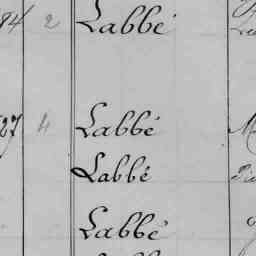 84 2 Labbé
27 4 Labbé
Labbé
Labbé